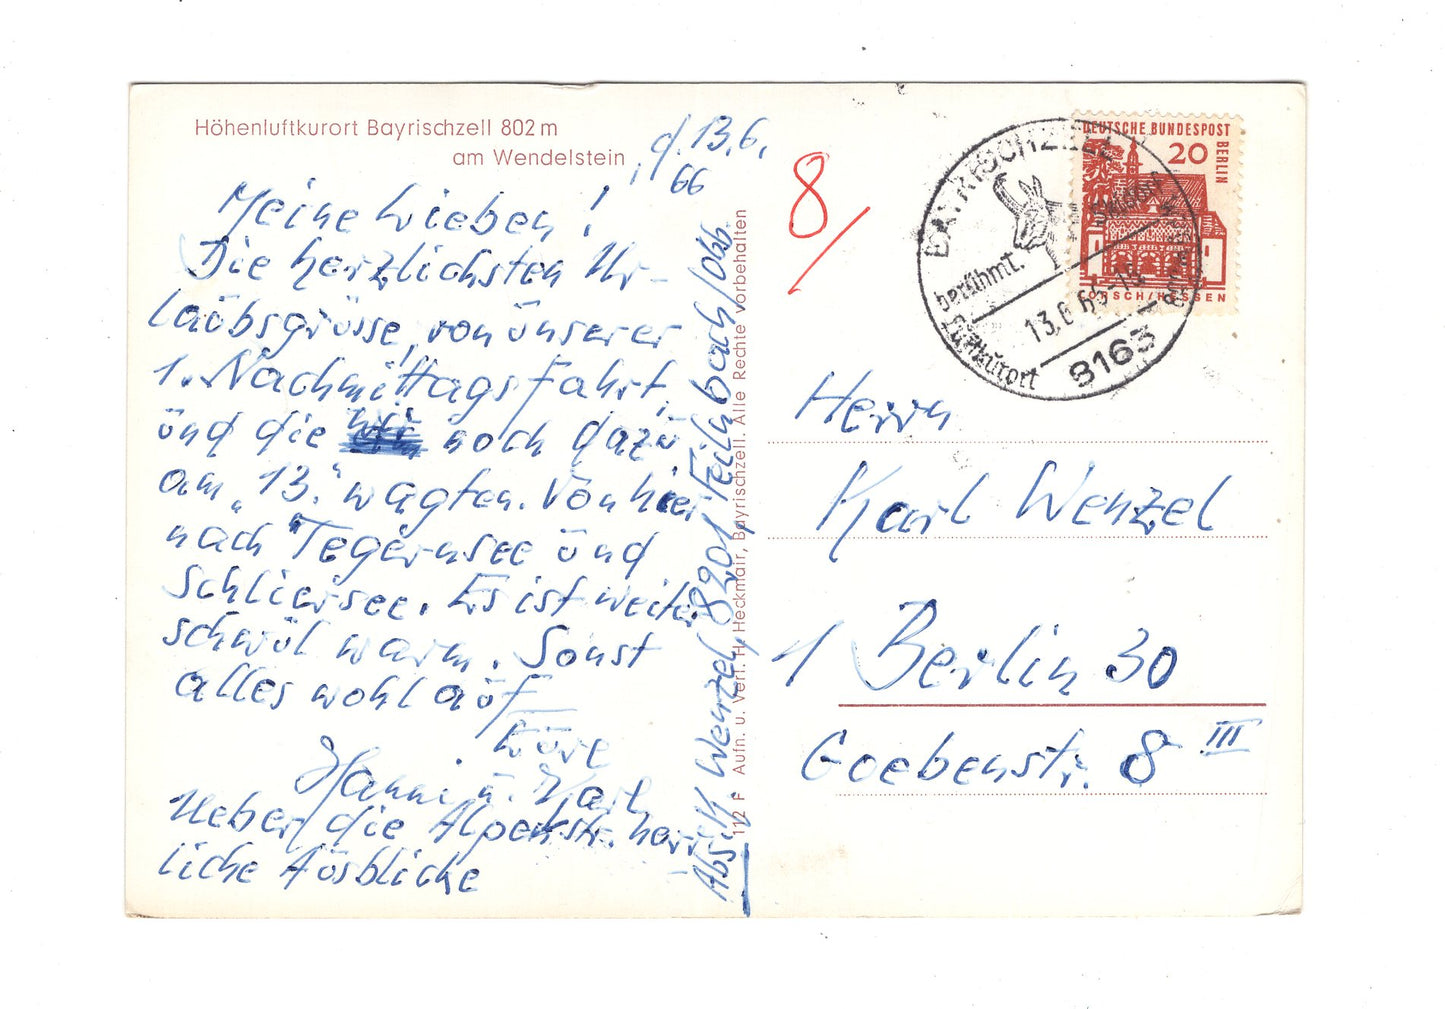 Höhenluftkurort Bayrischzell 802 m
am Wendelstein
d. 13.6.
66
Meine Lieben!
Die herzlichsten Ur-
laubsgrüsse, von unserer
1. Nachmittagsfahrt,
und die wir noch dazu
am "13." wagten. Von hier
nach Tegernsee und
Schliersee. Es ist weiter
schwül warm. Sonst
alles wohlauf
Eure
Hanni u. Karl
Ueber die Alpenstr. herr-
liche Ausblicke
Abs. K. Wenzel, 8201 Feilnbach/Obb.
112 F Aufn. u. Verl. H. Heckmair, Bayrischzell. Alle Rechte vorbehalten
8/
BAYRISCHZELL
berühmt.
Luftkurort
13.6.66-18
8163
DEUTSCHE BUNDESPOST
BERLIN
20
LORSCH/HESSEN
Herrn
Karl Wenzel
1 Berlin 30
Goebenstr. 8 III